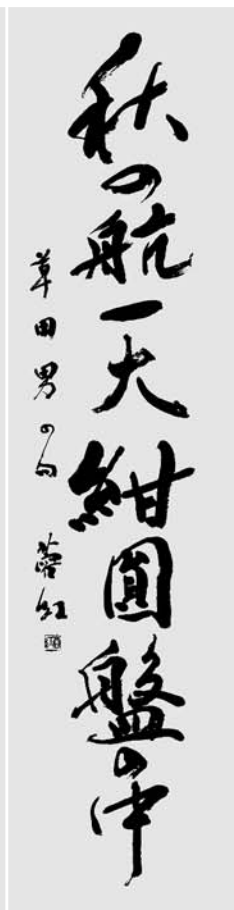 秋の航一大紺圓盤の中
草田男の句 蓉紅